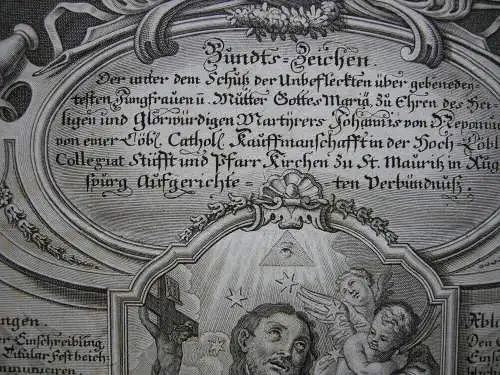 Bundts-Zeichen.
Der unter dem Schutz der Unbefleckten über gebenedey-
testen Jungfrauen ū. Mütter Gottes Mariä, zu Ehren des Hei-
ligen und Glorwürdigen Martyrers Johannis von Nepomuc
von einer Löbl. Cathol. Kauffmanschafft in der Hoch-Löbl.
Collegiat Stifft und Pfarr Kirchen zu St. Mauritz in Aug-
spurg Aufgerichte- ten Verbündnuß.
ngen.
er Einschreibung,
Titular Fest beich
mmuniciren.
Ablä
Den
Einsch